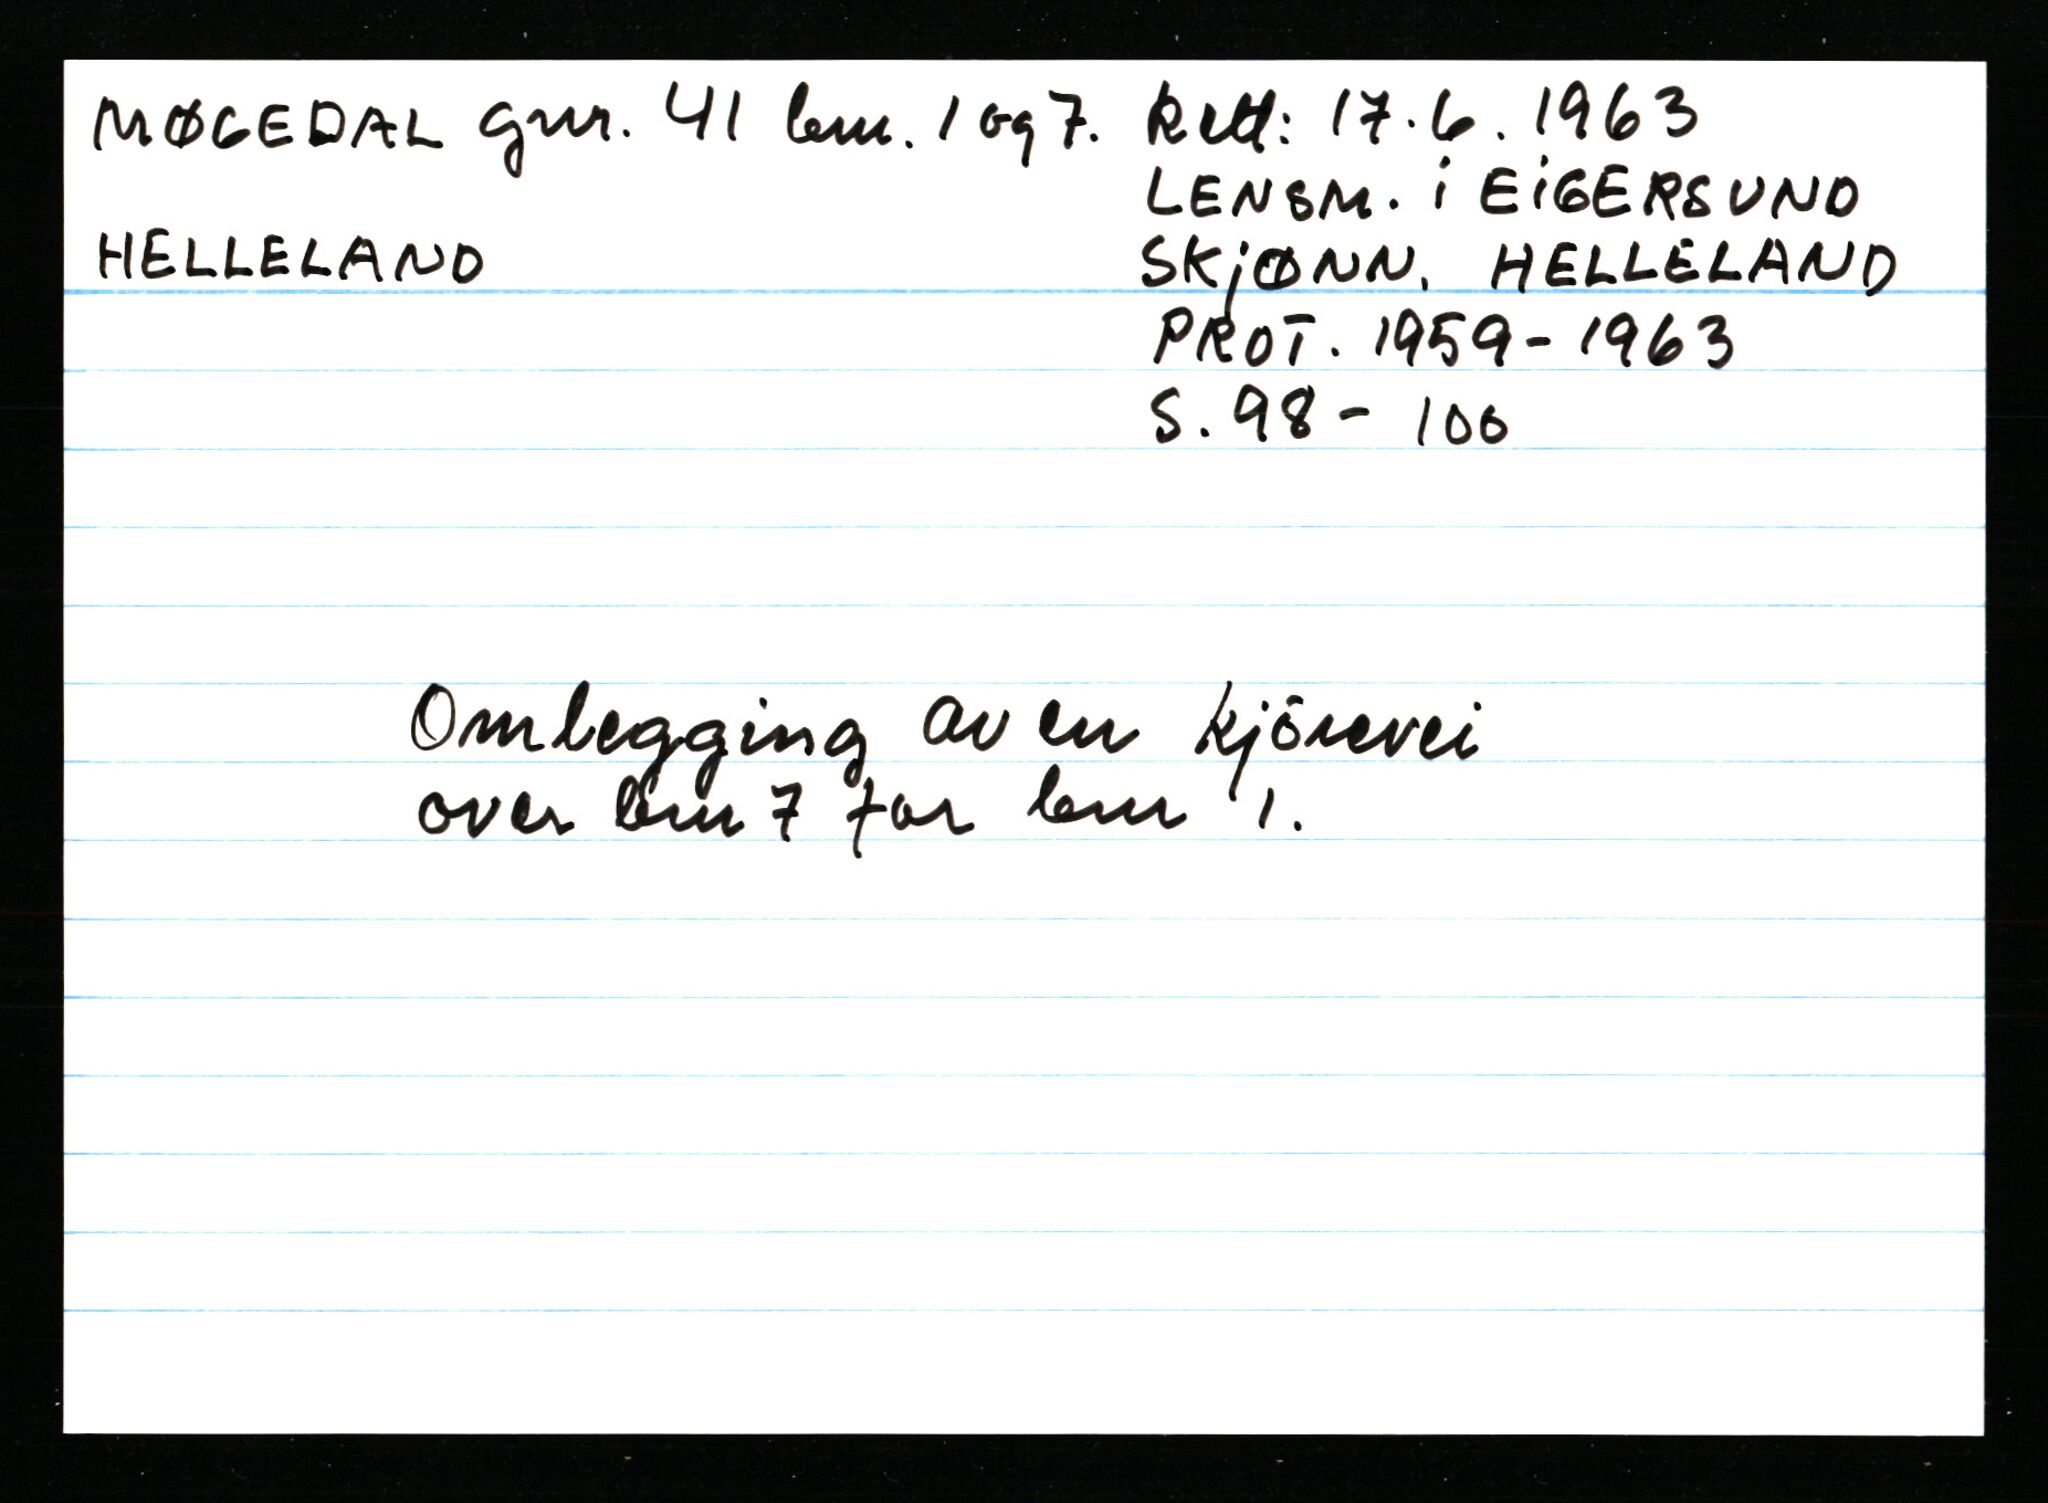 MØGEDAL gnr. 41 bnr. 1 og 7.
HELLELAND
Rett: 17.6.1963
LENSM. i EIGERSUND
SKJØNN. HELLELAND
PROT. 1959-1963
S. 98 - 100
Omlegging av en kjörevei
over bnr 7 for bnr 1.